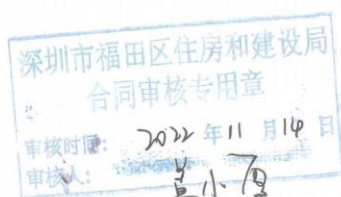 深圳市福田区住房和建设局
合同审核专用章
审核时间: 2022年11月14日
审核人: